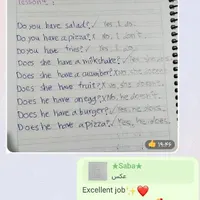 lesson 1
Do you have salad? ✓ Yes I do.
Do you have a pizza? X No, I don't.
Do you have fries? ✓ Yes I
Does she have a milkshake? ✓ Yes she does.
Does she have a cucumber? X No she doesn't.
Does she have fruit? X No she doesn't.
Does he have an egg? X No, he doesn't.
Does he have a burger? ✓ Yes, he does.
Does he have a pizza? ✓ Yes, he does.
👍 19:46
★Saba★
عکس
Excellent job ✨❤️